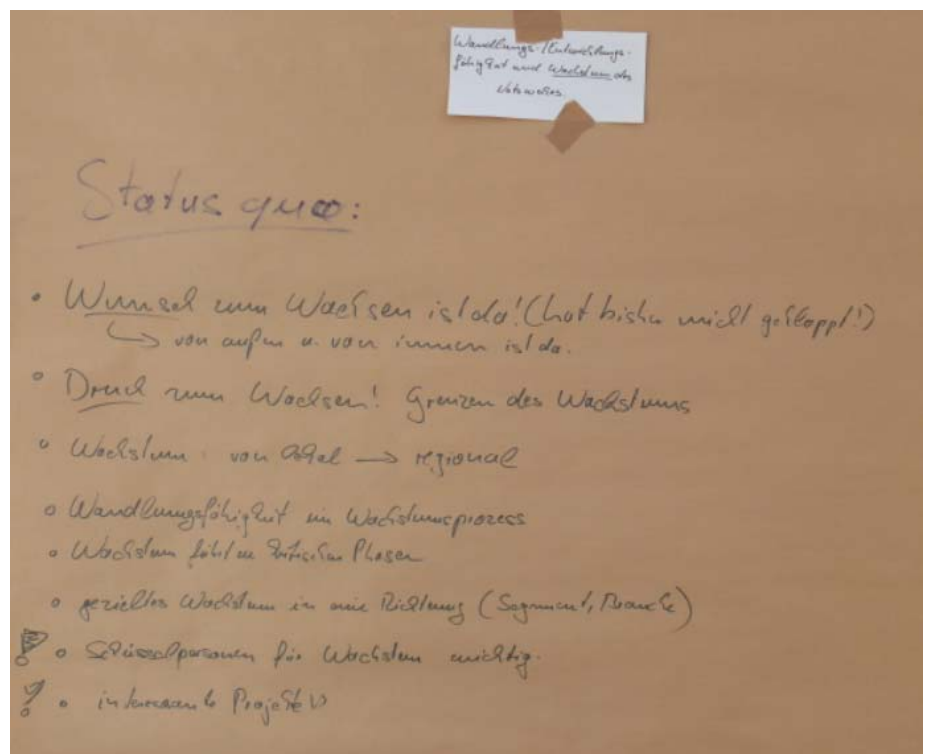 Wandlungs-/Entwicklungs-
fähigkeit und Wachstum des
Netzwerkes.
Status quo:
• Wunsch zum Wachsen ist da! (hat bisher nicht geklappt!)
↳ von außen u. von innen ist da.
• Druck zum Wachsen! Grenzen des Wachstums
• Wachstum: von lokal → regional
• Wandlungsfähigkeit im Wachstumsprozess
• Wachstum führt zu kritischen Phasen
• gezieltes Wachstum in eine Richtung (Segment, Branche)
! • Schlüsselpersonen für Wachstum wichtig.
! • interessante Projekte